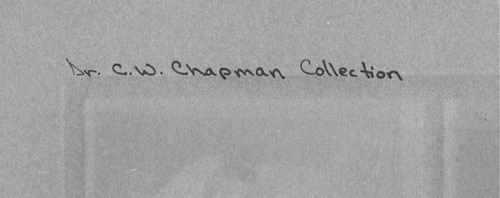 Dr. C.W. Chapman Collection